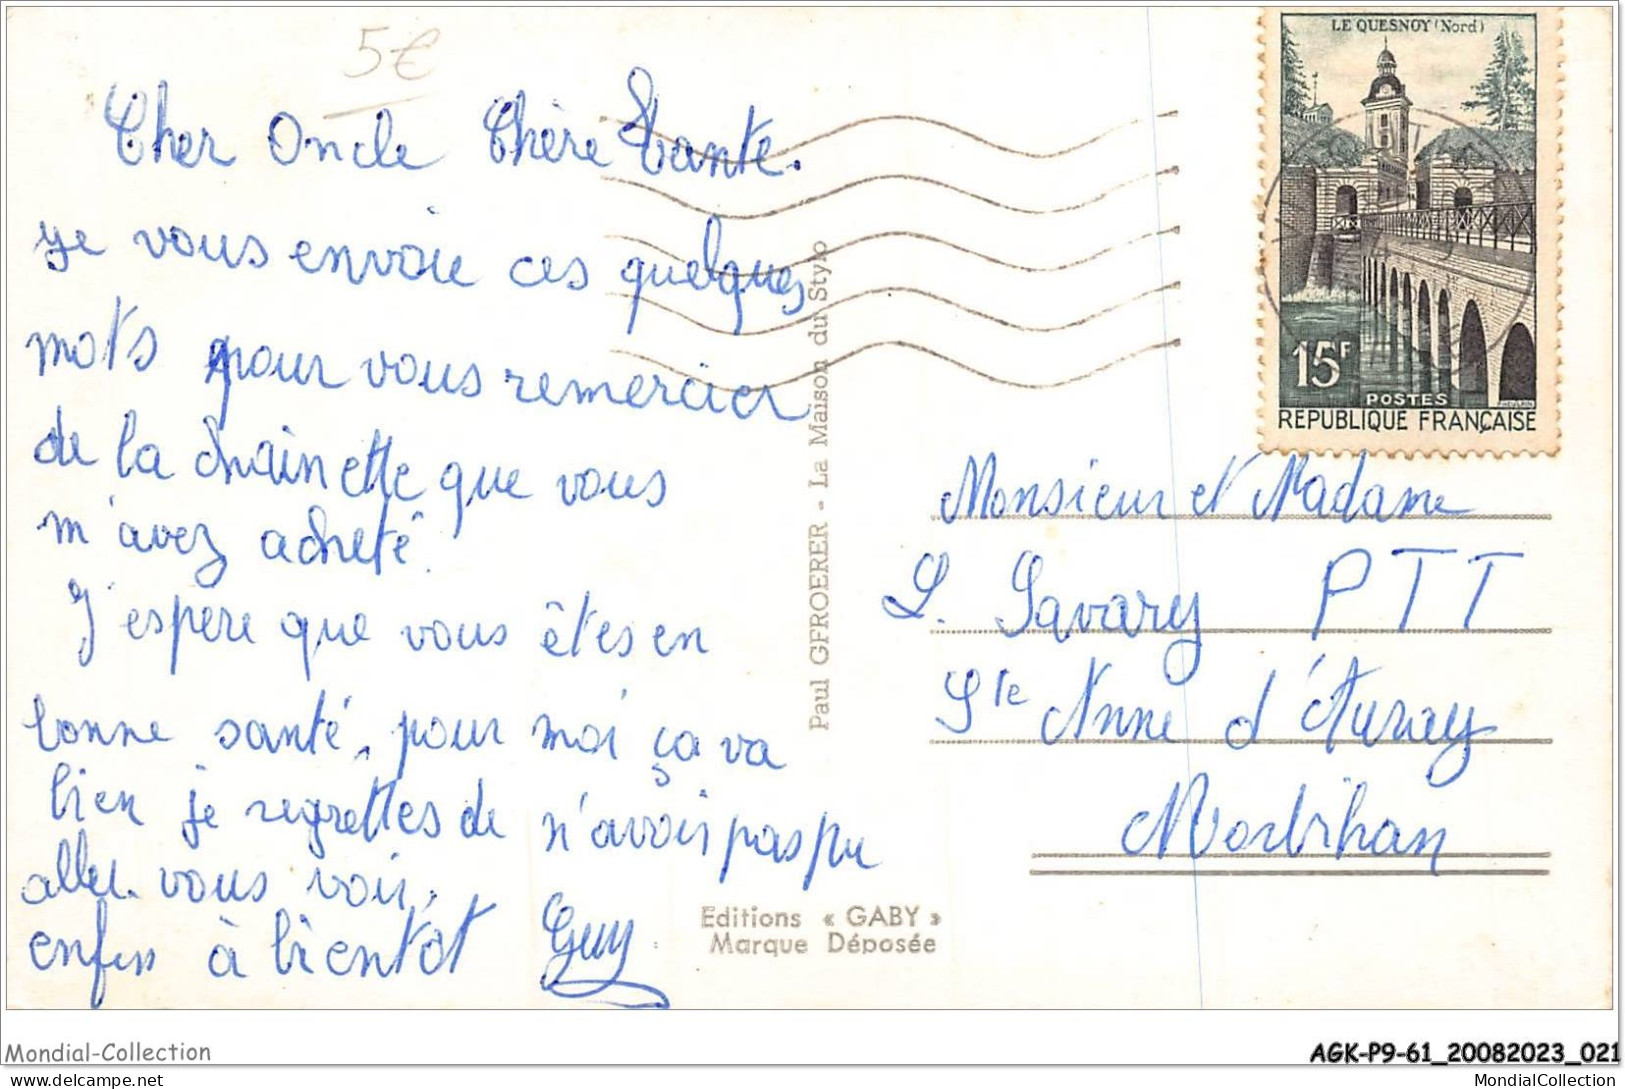 5€
Cher Oncle Chère Tante.
je vous envoie ces quelques
mots pour vous remercier
de la chainette que vous
m'avez acheté.
J'espère que vous êtes en
bonne santé, pour moi ça va
bien je regrettes de n'avoir pas pu
aller vous voir,
enfin à bientot Guy
Paul GFROERER - La Maison du Stylo
Editions « GABY »
Marque Déposée
LE QUESNOY (Nord)
15F
POSTES
REPUBLIQUE FRANÇAISE
Monsieur et Madame
L. Savary PTT
Ste Anne d'Auray
Morbihan
Mondial-Collection
AGK-P9-61_20082023_021
delcampe.net
MondialCollection